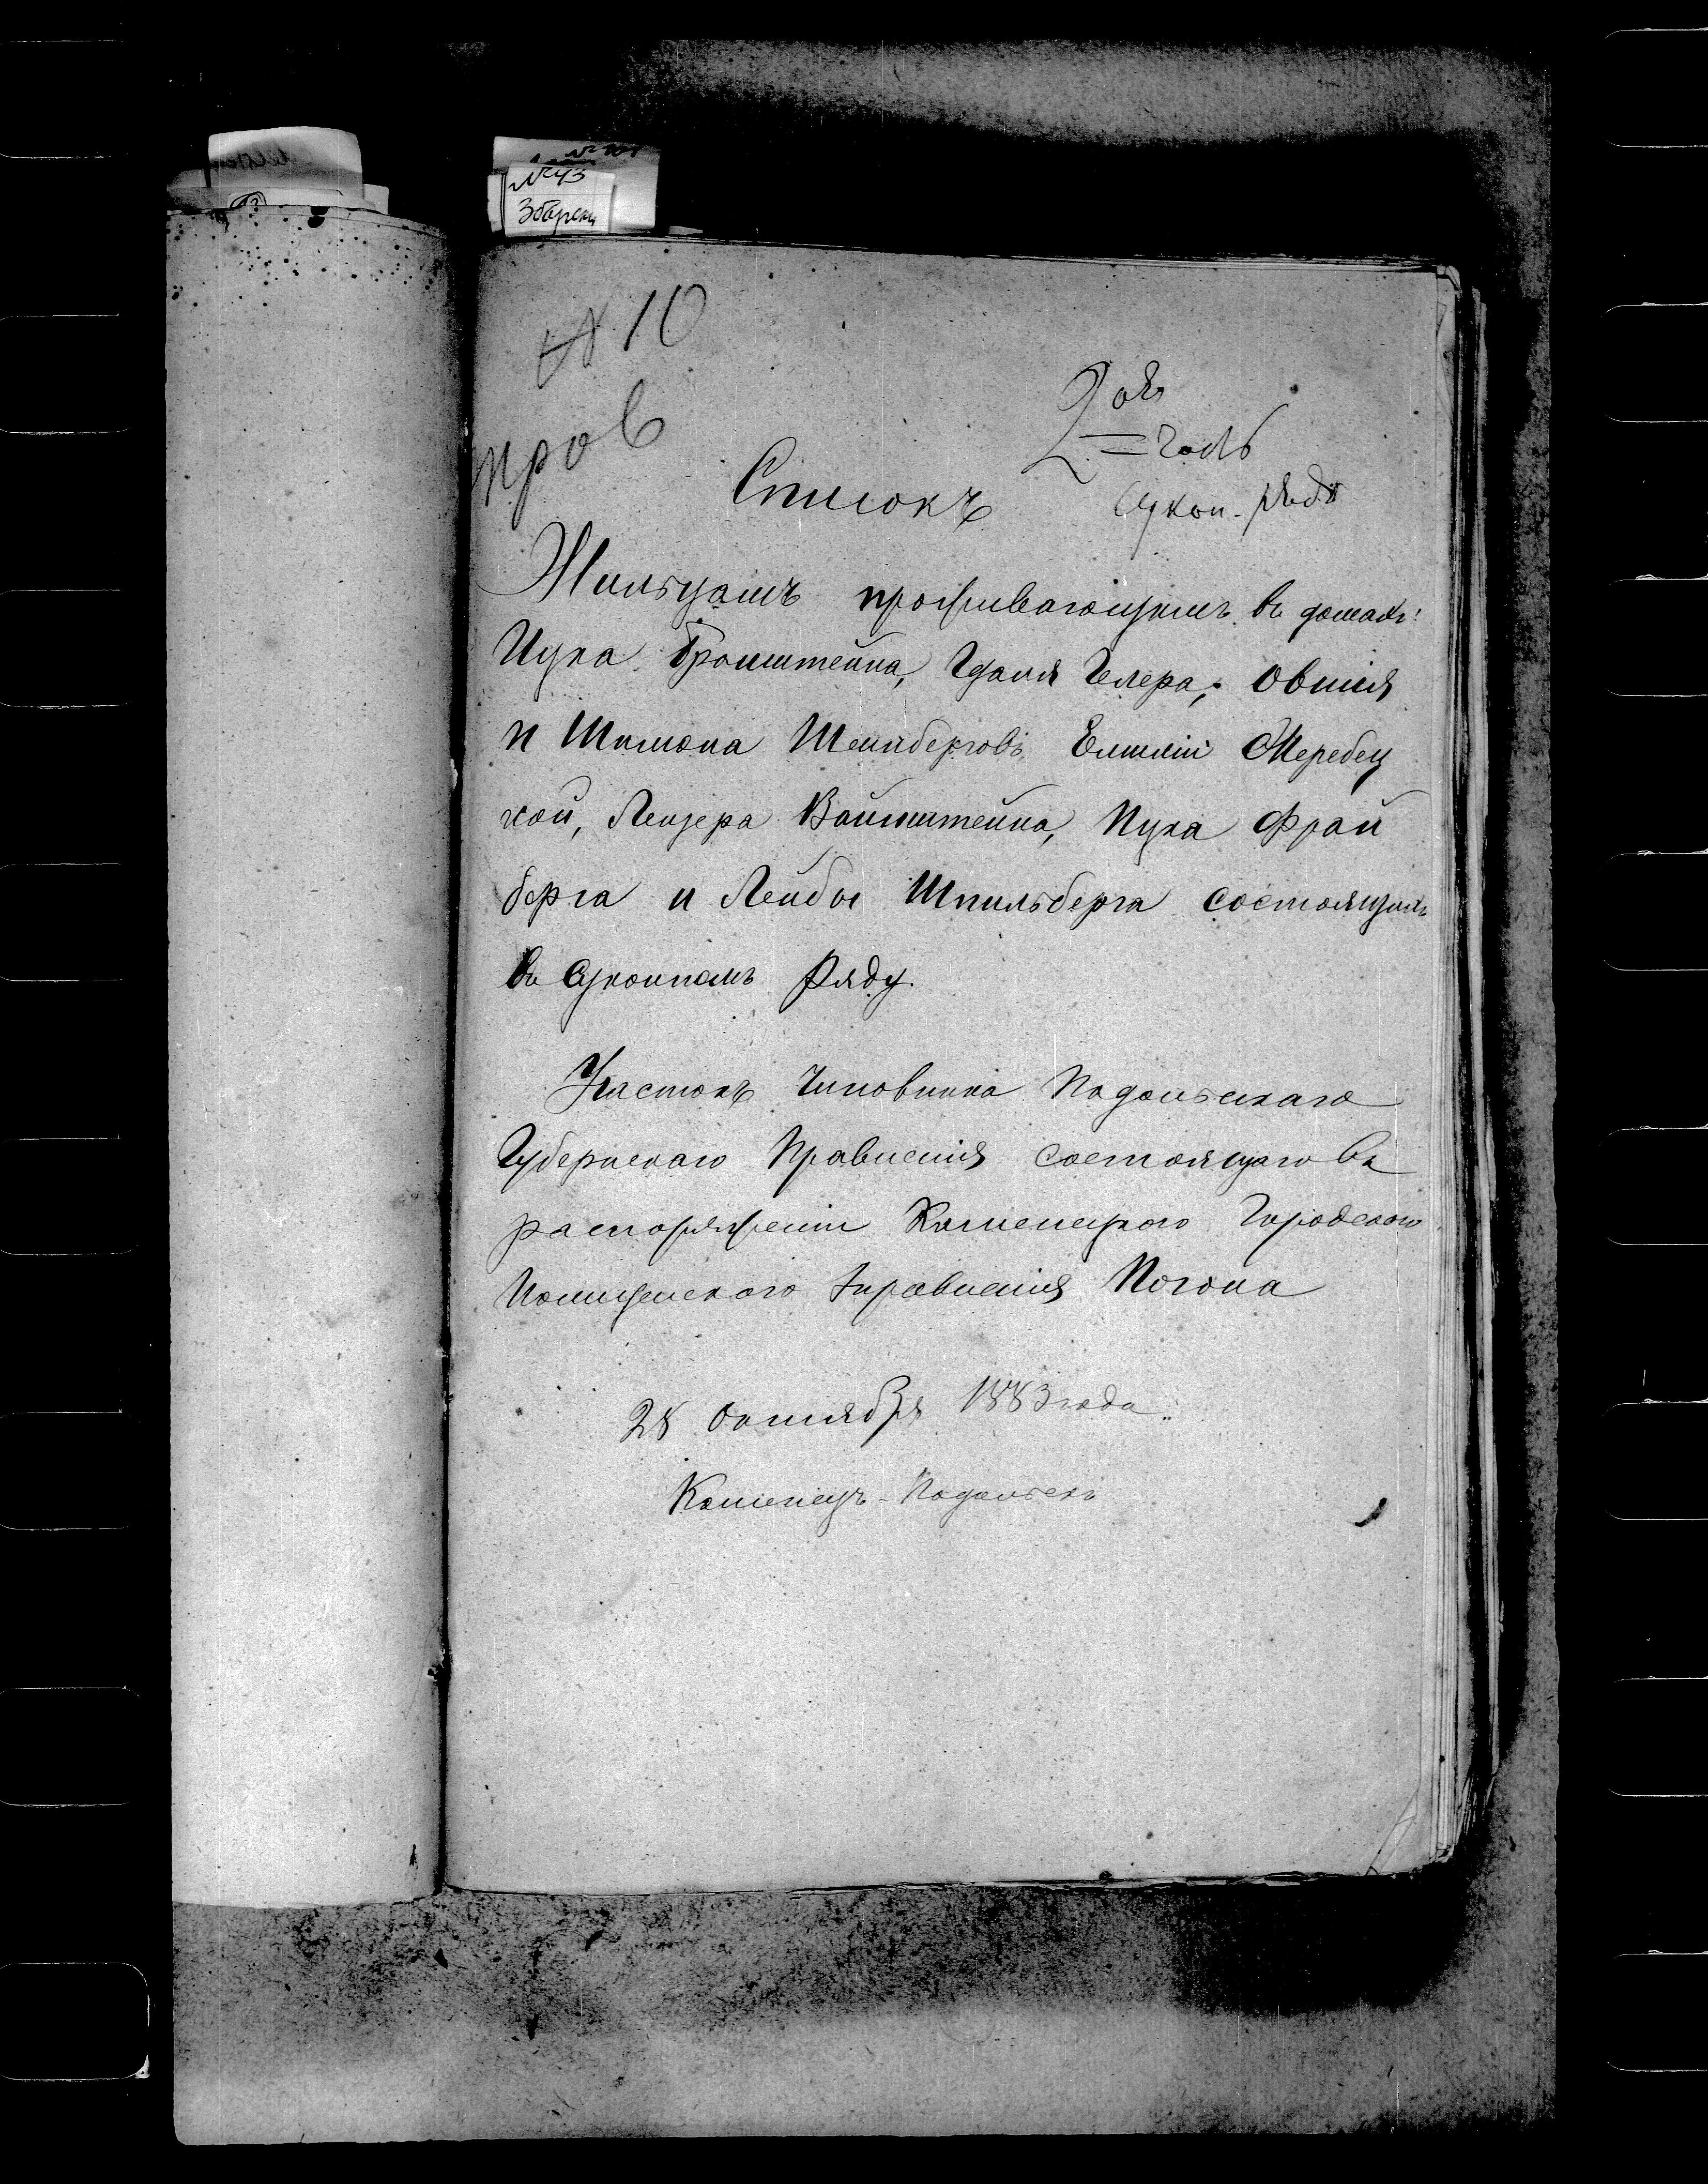 № 43
Збареж
№ 10
пров
2 ая
часть
Сукон. рядъ
Списокъ
Жильцамъ проживающимъ въ домахъ:
Ицка Бронштейна, Гдаля Гелера, Овшія
и Шимона Шейнберговъ, Емилiи Жеребец
кой, Лейзера Вайнштейна, Ицка Фрай
берга и Лейбы Шпильберга состоящихъ
въ Суконномъ Ряду.
Участокъ Чиновника Подольскаго
Губернскаго Правленія состоящаго въ
распоряженіи Каменецкого Городского
Полицейского Управленія Логона
28 Октября 1883 года.
Каменецъ-Подольскъ